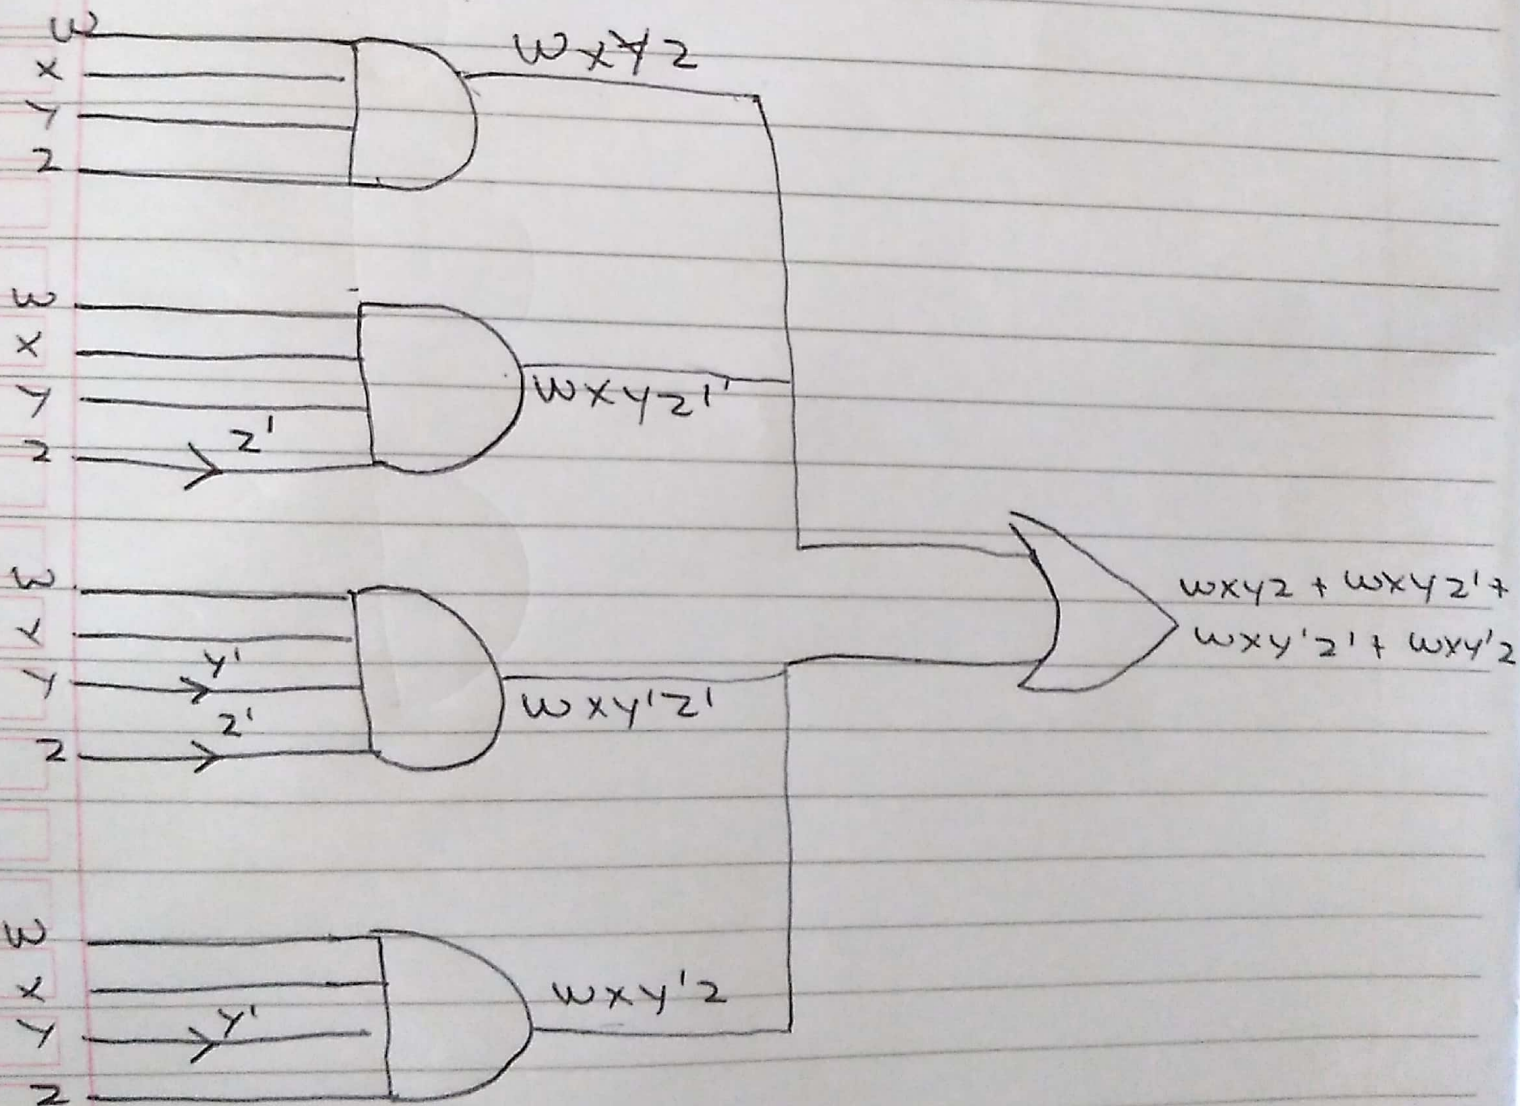 W
X
Y
Z
WXYZ
W
X
Y
Z
Z'
WXYZ'
W
X
Y
Y'
Z
Z'
WXY'Z'
WXYZ + WXYZ' +
WXY'Z' + WXY'Z
W
X
Y
Y'
Z
WXY'Z